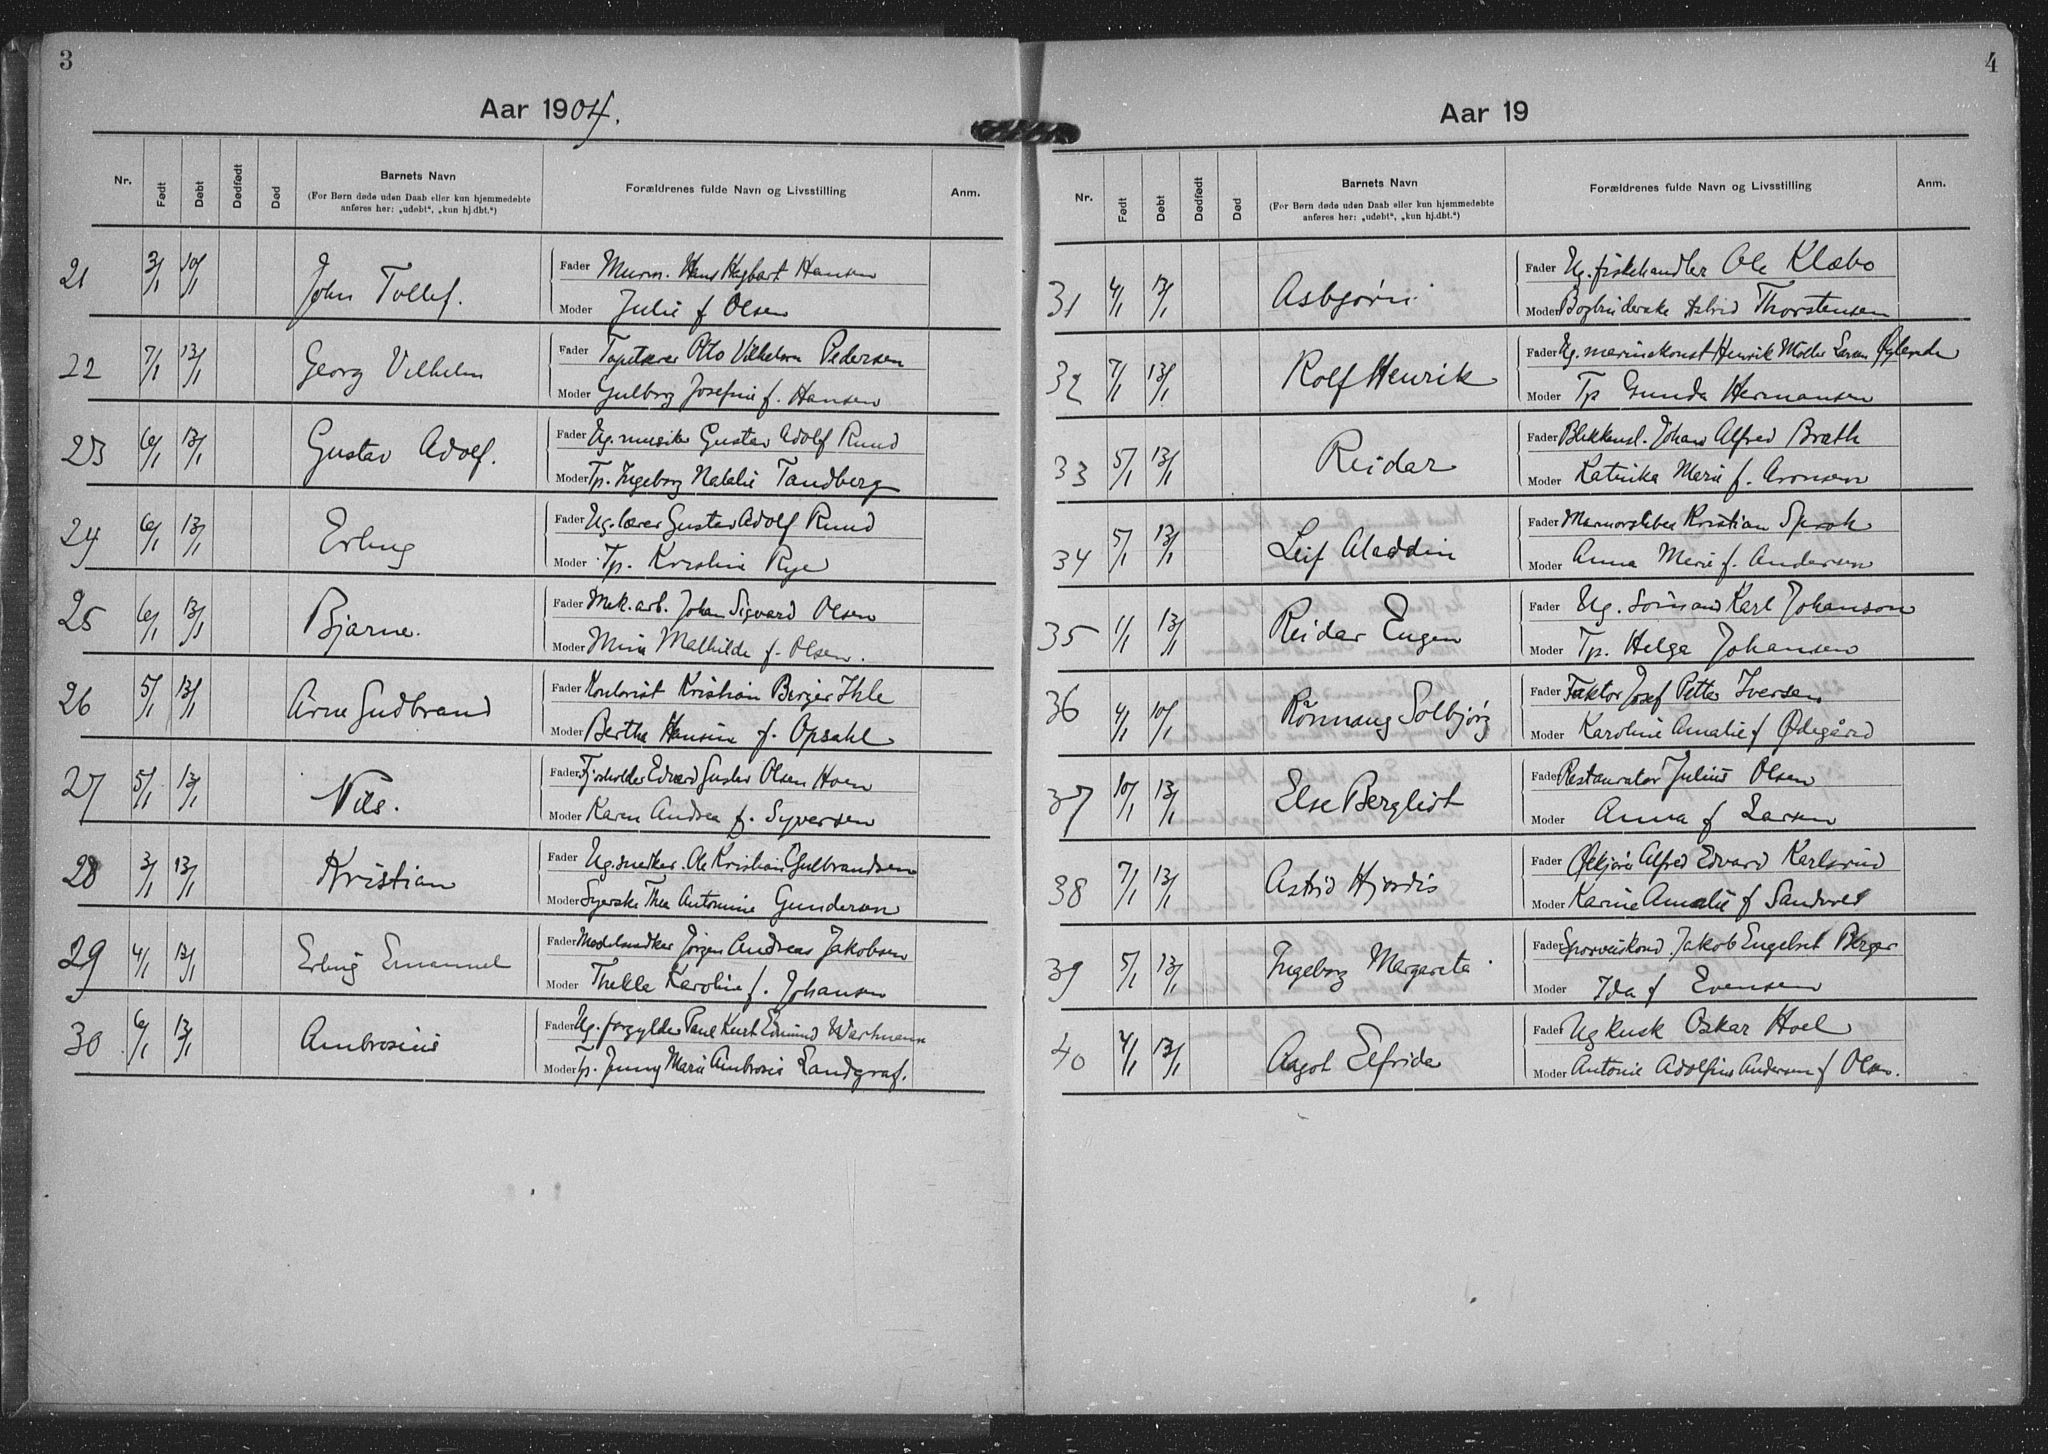 3
Aar 1904.
Nr. Født Døbt Dødfødt Død Barnets Navn Forældrenes fulde Navn og Livsstilling Anm.
(For Børn døde uden Daab eller kun hjemmedøbte
anføres her: „udøbt“, „kun hj.dbt.“)
21 3/1 10/1 John Tollef. Fader Murm. Hans Hagbart Hansen
Moder Julie f Olsen
22 7/1 13/1 Georg Vilhelm Fader Tapetserer Otto Vilhelm Pedersen
Moder Gulborg Josefine f. Hansen
23 6/1 13/1 Gustav Adolf. Fader Ug. musiker Gustav Adolf Ruud
Moder Tp. Ingeborg Natalie Tandberg
24 6/1 13/1 Erling Fader Ug. lærer Gustav Adolf Ruud
Moder Tp. Kristine Rye
25 6/1 13/1 Bjarne. Fader Mek. arb. Johan Sigvard Olsen
Moder Mina Mathilde f. Olsen.
26 5/1 13/1 Arne Gudbrand Fader Kontorist Kristian Berger Ihle
Moder Berthe Hansine f. Opsahl
27 5/1 13/1 Nils. Fader Edvard Gustav Olsen Hoen
Moder Karen Andrea f. Syversen
28 3/1 13/1 Kristian Fader Ug. snedker. Ole Kristian Gulbrandsen
Moder Syerske Thea Antonine Gundersen
29 4/1 13/1 Erling Emanuel Fader Modelsnedker Jørgen Andreas Jakobsen
Moder Thekla Karoline f. Johansen
30 6/1 13/1 Ambrosius Fader Ug. forgylder Paul Kurt Edmund Wartmann
Moder Tp. Jenny Marie Ambrosia Landgraf.
4
Aar 19
Nr. Født Døbt Dødfødt Død Barnets Navn Forældrenes fulde Navn og Livsstilling Anm.
(For Børn døde uden Daab eller kun hjemmedøbte
anføres her: „udøbt“, „kun hj.dbt.“)
31 4/1 13/1 Asbjørn Fader Ug. fiskehandler Ole Klæbo
Moder Bogbinderske Astrid Thorstensen
32 7/1 13/1 Rolf Henrik Fader Ug. marinekonst Henrik Møller Larsen
Moder Tp Gunda Hermansen
33 5/1 13/1 Reidar Fader Blikkensl. Johan Alfred Brath
Moder Katinka Marie f. Aronsen
34 5/1 13/1 Leif Aladdin Fader Marmorsliber Kristian Sprok
Moder Anna Marie f. Andersen
35 1/1 13/1 Reidar Eugen Fader Ug. Sømand Karl Johanson
Moder Tp. Helga Johansen
36 4/1 10/1 Rønnaug Solbjørg Fader Faktor Josef Petter Iversen
Moder Karoline Amalie f Ødegård
37 10/1 13/1 Else Bergliot Fader Restauratør Julius Olsen
Moder Anna f Larsen
38 7/1 13/1 Astrid Hjørdis Fader Alfred Edvard Karlsrud
Moder Karine Amalie f Sandvold
39 5/1 13/1 Ingeborg Margareta Fader Sporveiskond. Jakob Engelbret Berger
Moder Ida f Evensen
40 4/1 13/1 Aagot Elfrida Fader Ug Kusk Oskar Hoel
Moder Antonie Adolfine Andersen f Olsen.